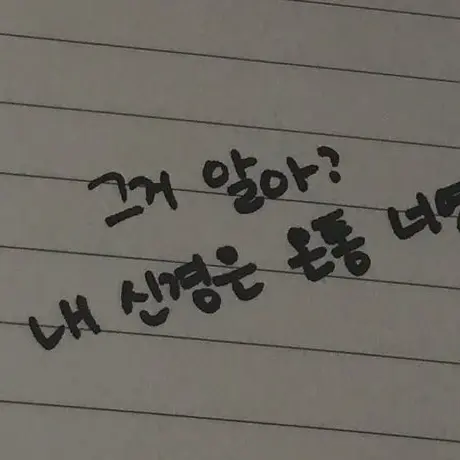 그거 알아?
내 신경은 온통 너였